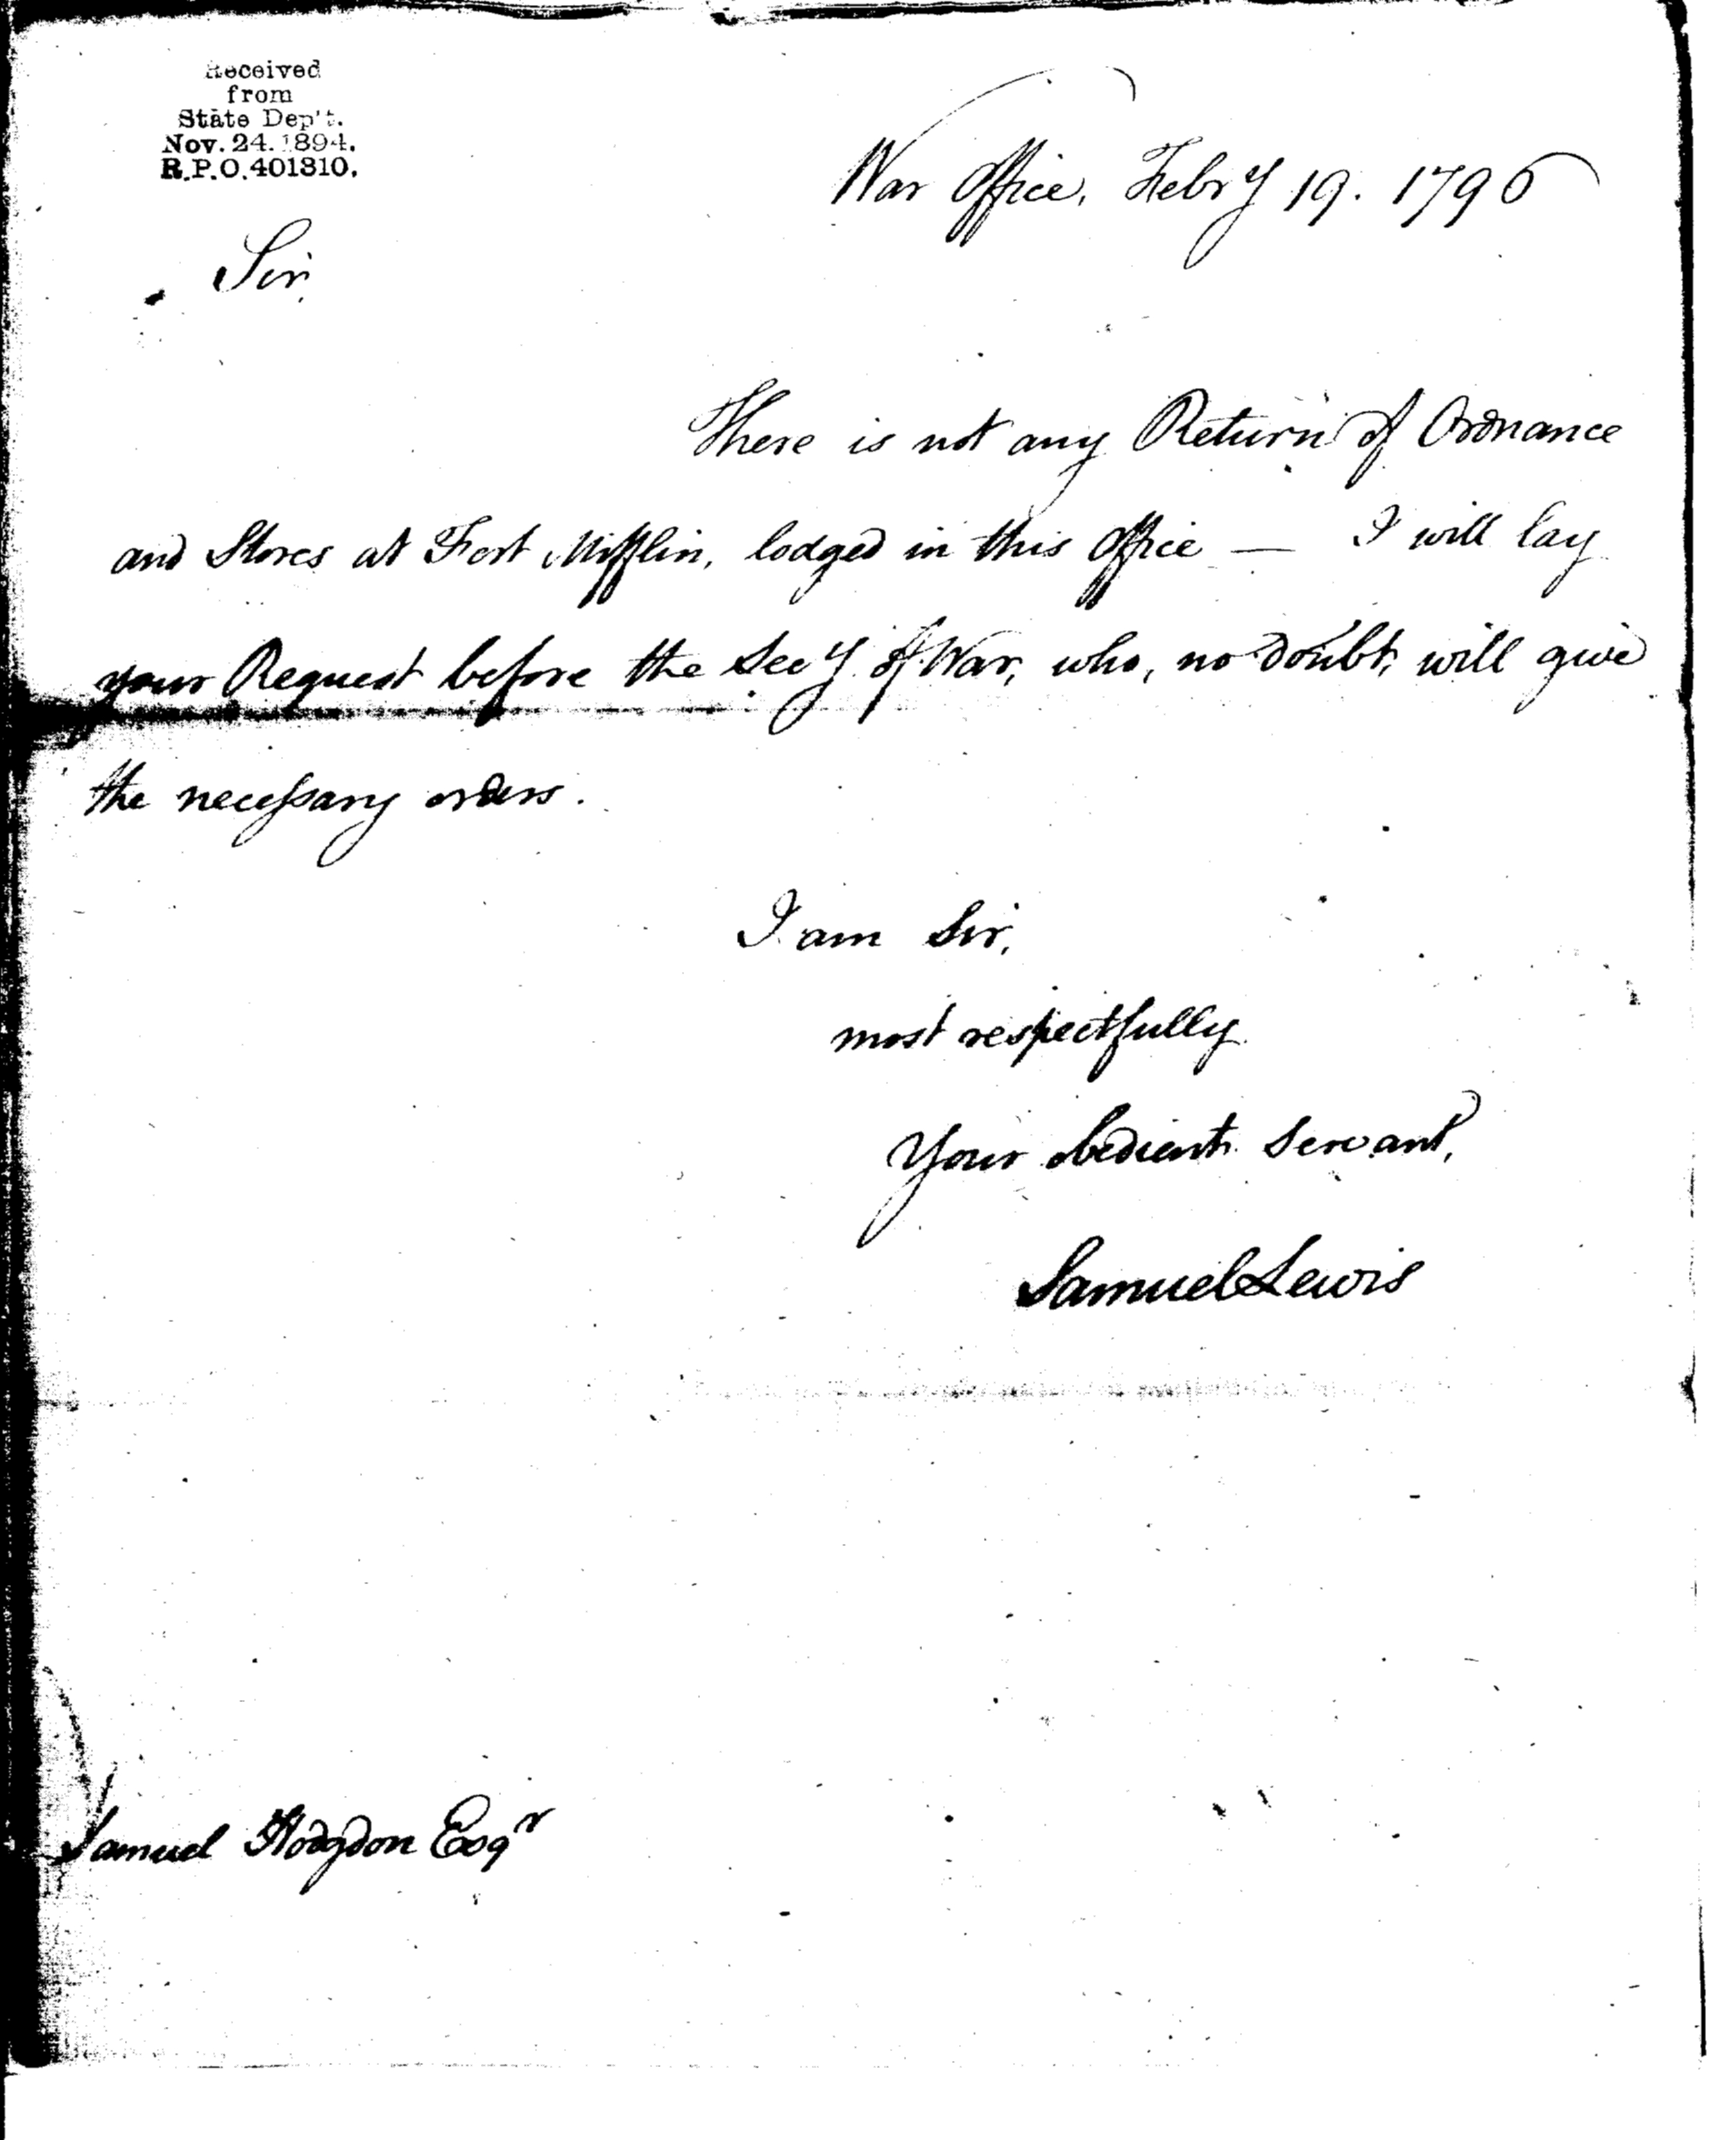 Received
from
State Dep't.
Nov. 24. 1894.
R.P.O. 401310.
War Office, Febry 19. 1796
Sir,
There is not any Return of Ordnance
and Stores at Fort Mifflin, lodged in this Office — I will lay
your Request before the Secy of War, who, no doubt, will give
the necessary orders.
I am Sir,
most respectfully
Your obedient Servant,
Samuel Lewis
Samuel Hodgdon Esqr